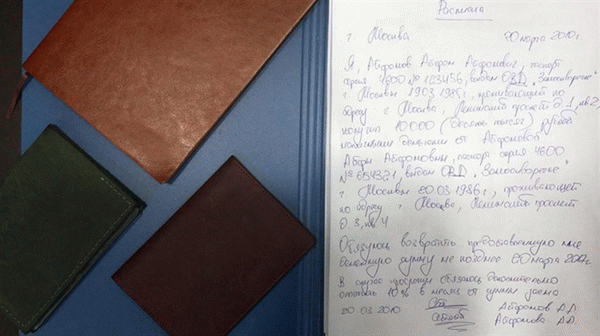 Расписка
г. Москва 20 марта 2010 г.
Я, Айфонов Айфон Айфонович, паспорт
серия 4800 № 123456, выдан ОВД „Замоскворечье"
г. Москвы 19.03.1985 г., проживающий по
адресу г. Москва, Ленинский проспект д. 1, кв. 2,
получил 10 000 (десять тысяч) рублей
наличными деньгами от Айфоновой
Айфы Айфоновны, паспорт серия 4600
№ 654321, выдан ОВД „Замоскворечье"
г. Москвы 20.03.1986 г., проживающей
по адресу г. Москва, Ленинский проспект
д. 3, кв. 4
Обязуюсь возвратить предоставленную мне
денежную сумму не позднее 20 марта
В случае просрочки обязуюсь дополнительно
10% в месяц от суммы займа
20.03.2010 Айфонов А.А.
Айфонова А.А.